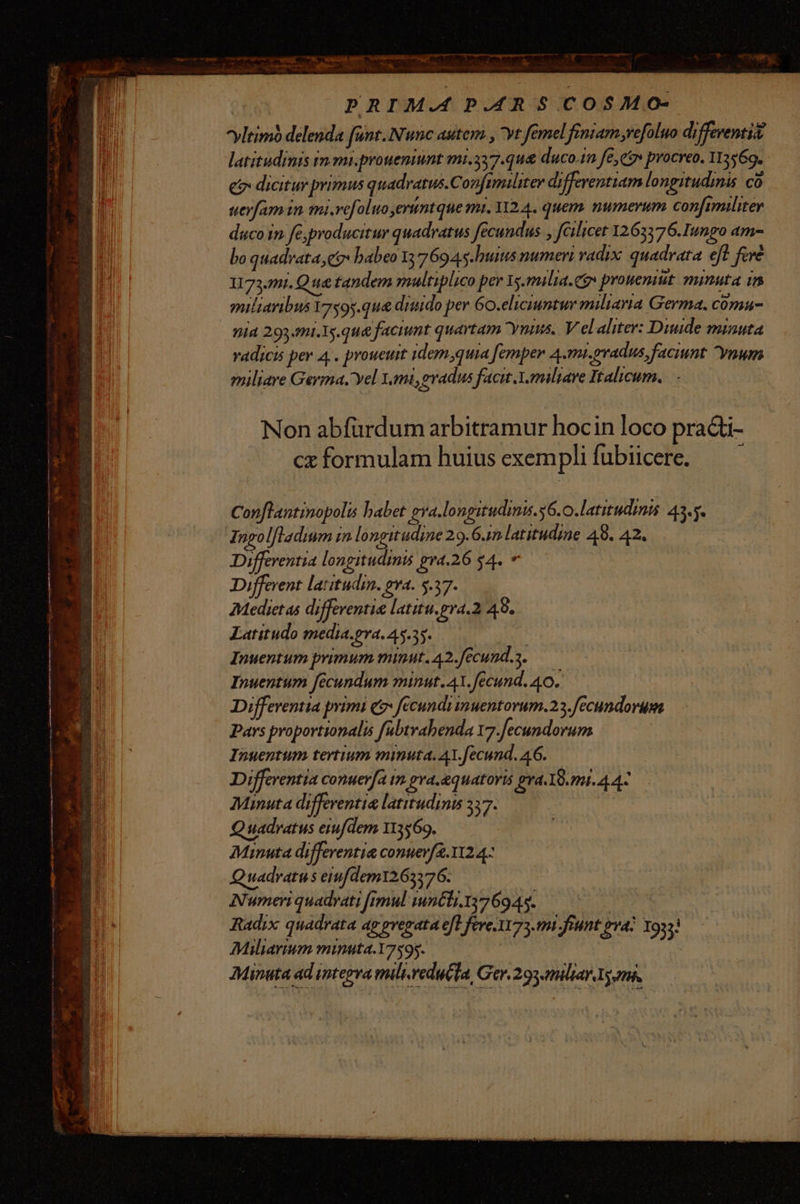 PRIMA PARS COSMO-
vltimò delenda ſunt. Nunc autem, vt ſemel finiam, reſoluo differentiã
latitudinis in mi. proueniunt mi. 337. quæ duco in ſe, & procreo. 113569.
& dicitur primus quadratus. Conſimiliter differentiam longitudinis cõ
uerſam in mi. reſoluo, erũntque mi. 1124. quem numerum conſimiliter
duco in ſe, producitur quadratus ſecundus, ſcilicet 1263376. Iungo am-
bo quadrata, & habeo 1376945. huius numeri radix quadrata eſt ferè
1173. mi. Quæ tandem multiplico per 15. milia. & proueniũt minuta in
miliaribus 17595. quæ diuido per 60. eliciuntur miliaria Germa. comu-
nia 293. mi. 15. quæ faciunt quartam vnius. Vel aliter: Diuide minuta
radicis per 4. prouenit idem, quia ſemper 4. mi. gradus, faciunt vnum
miliare Germa. vel 1. mi, gradus facit 1. miliare Italicum.
Non abſurdum arbitramur hoc in loco practi-
cæ formulam huius exempli ſubiicere.
Conſtantinopolis habet gra. longitudinis. 56. 0. latitudinis 43. 5.
Ingolſtadium in longitudine 29. 6. in latitudine 48. 42.
Differentia longitudinis gra. 26 54.
Different latitudin. gra. 5. 37.
Medietas differentiæ latitu. gra. 2 48.
Latitudo media. gra. 45. 35.
Inuentum primum minut. 42. ſecund. 3.
Inuentum ſecundum minut. 41. ſecund. 40.
Differentia primi & ſecundi inuentorum. 23. ſecundorum
Pars proportionalis ſubtrahenda 17. ſecundorum
Inuentum tertium minuta. 41. ſecund. 46.
Differentia conuerſa in gra. æquatoris gra. 18. mi. 44.
Minuta differentiæ latitudinis 337.
Quadratus eiuſdem 113569.
Minuta differentiæ conuerſæ. 1124.
Quadratus eiuſdem 1263376.
Numeri quadrati ſimul iuncti. 1376945.
Radix quadrata aggregata eſt fere. 1173. mi. fiunt gra. 1933
Miliarium minuta. 17595.
Minuta ad integra mili. reducta, Ger. 293. miliar. 15. mi.